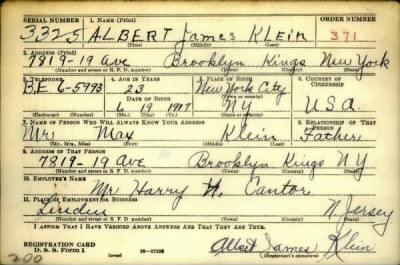 SERIAL NUMBER 1. NAME (Print) ORDER NUMBER
3325 ALBERT James KLEIN 371
(First) (Middle) (Last)
2. ADDRESS (Print)
7819-19 Ave Brooklyn Kings New York
(Number and street or R. F. D. number) (Town) (County) (State)
3. TELEPHONE 4. AGE IN YEARS 5. PLACE OF BIRTH 6. COUNTRY OF CITIZENSHIP
BE 6-5793 23 New York City
DATE OF BIRTH
6 19 1917 NY USA
(Mo.) (Day) (Yr.)
7. NAME OF PERSON WHO WILL ALWAYS KNOW YOUR ADDRESS 8. RELATIONSHIP OF THAT PERSON
Mr Max Klein Father
(Mr., Mrs., Miss) (First) (Middle) (Last)
9. ADDRESS OF THAT PERSON
7819-19 Ave Brooklyn Kings NY
(Number and street or R. F. D. number) (Town) (County) (State)
10. EMPLOYER'S NAME
Mr Harry H. Cantor
11. PLACE OF EMPLOYMENT OR BUSINESS
Linden N Jersey
(Number and street or R. F. D. number) (Town) (County) (State)
I AFFIRM THAT I HAVE VERIFIED ABOVE ANSWERS AND THAT THEY ARE TRUE.
REGISTRATION CARD
D. S. S. Form 1 (over) Albert James Klein
(Registrant's signature)
200